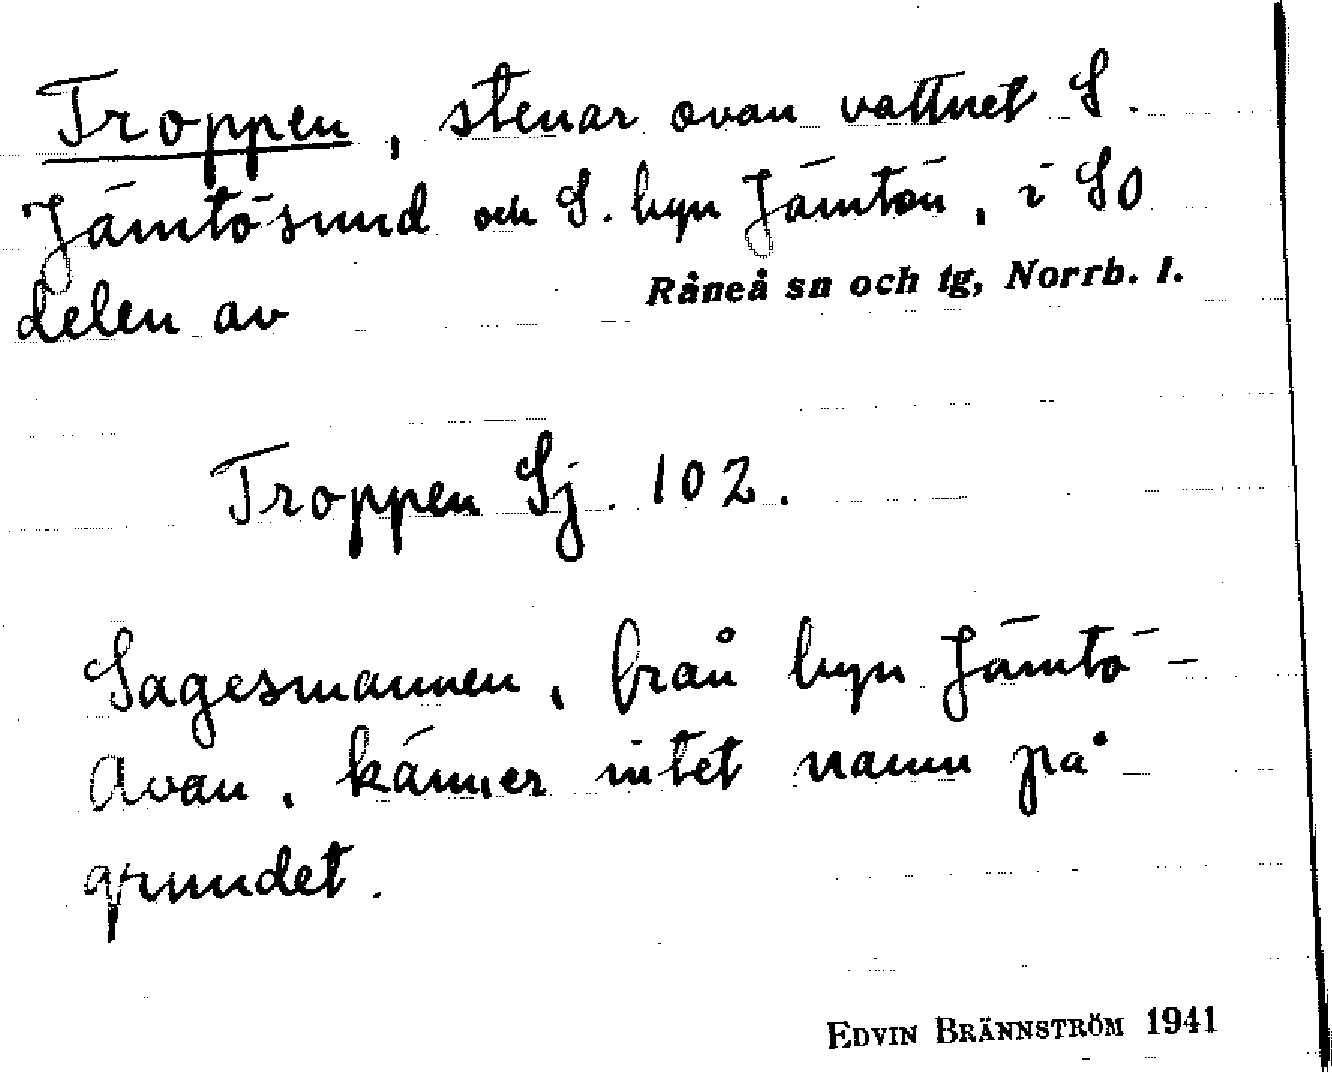 Troppen, stenar ovan vattnet S.
Jämtösund och S. byn Jämtön, i SO
delen av Råneå sn och tg, Norrb. l.
Troppen Sj. 102.
Sagesmannen, från byn Jämtö-
Avan, känner intet namn på
grundet.
EDVIN BRÄNNSTRÖM 1941